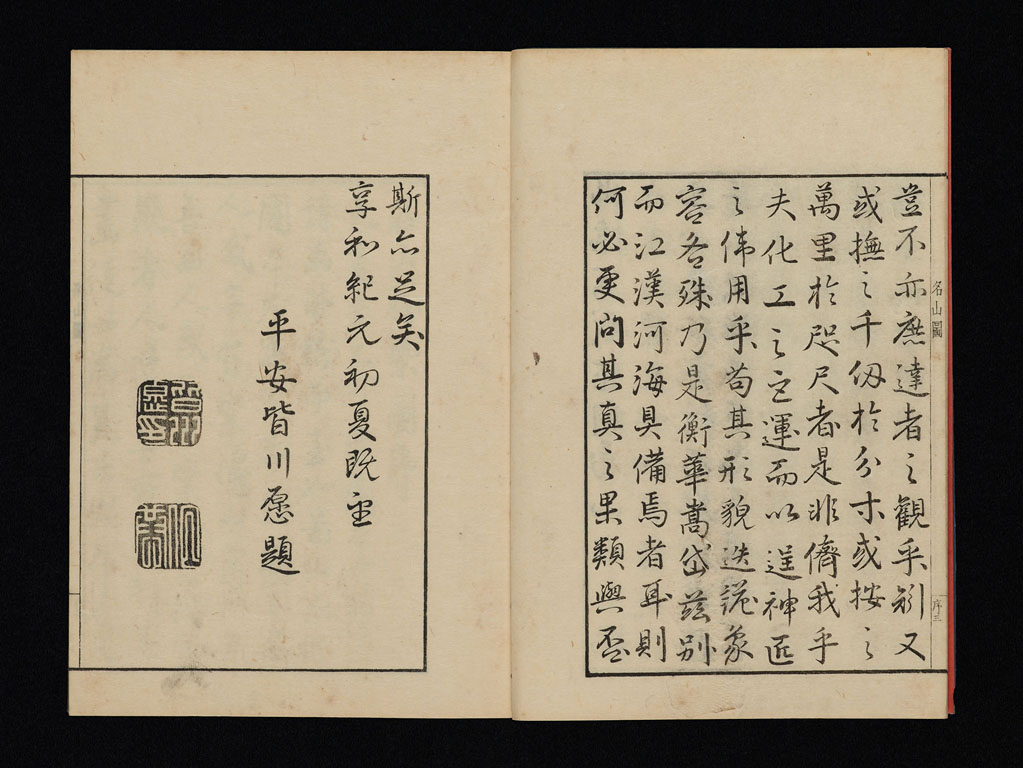 豈不亦庶達者之觀乎矧又
或撫之千仭於分寸或按之
萬里於咫尺者是非儕我乎
夫化工之運而以逞神匠
之偉用乎苟其形貌迭詭象
容各殊乃是衡華嵩岱茲別
而江漢河海具備焉者耳則
何必更問其真之果類與否
名山圖
序三
斯亦足矣
享和紀元初夏既望
平安皆川愿題